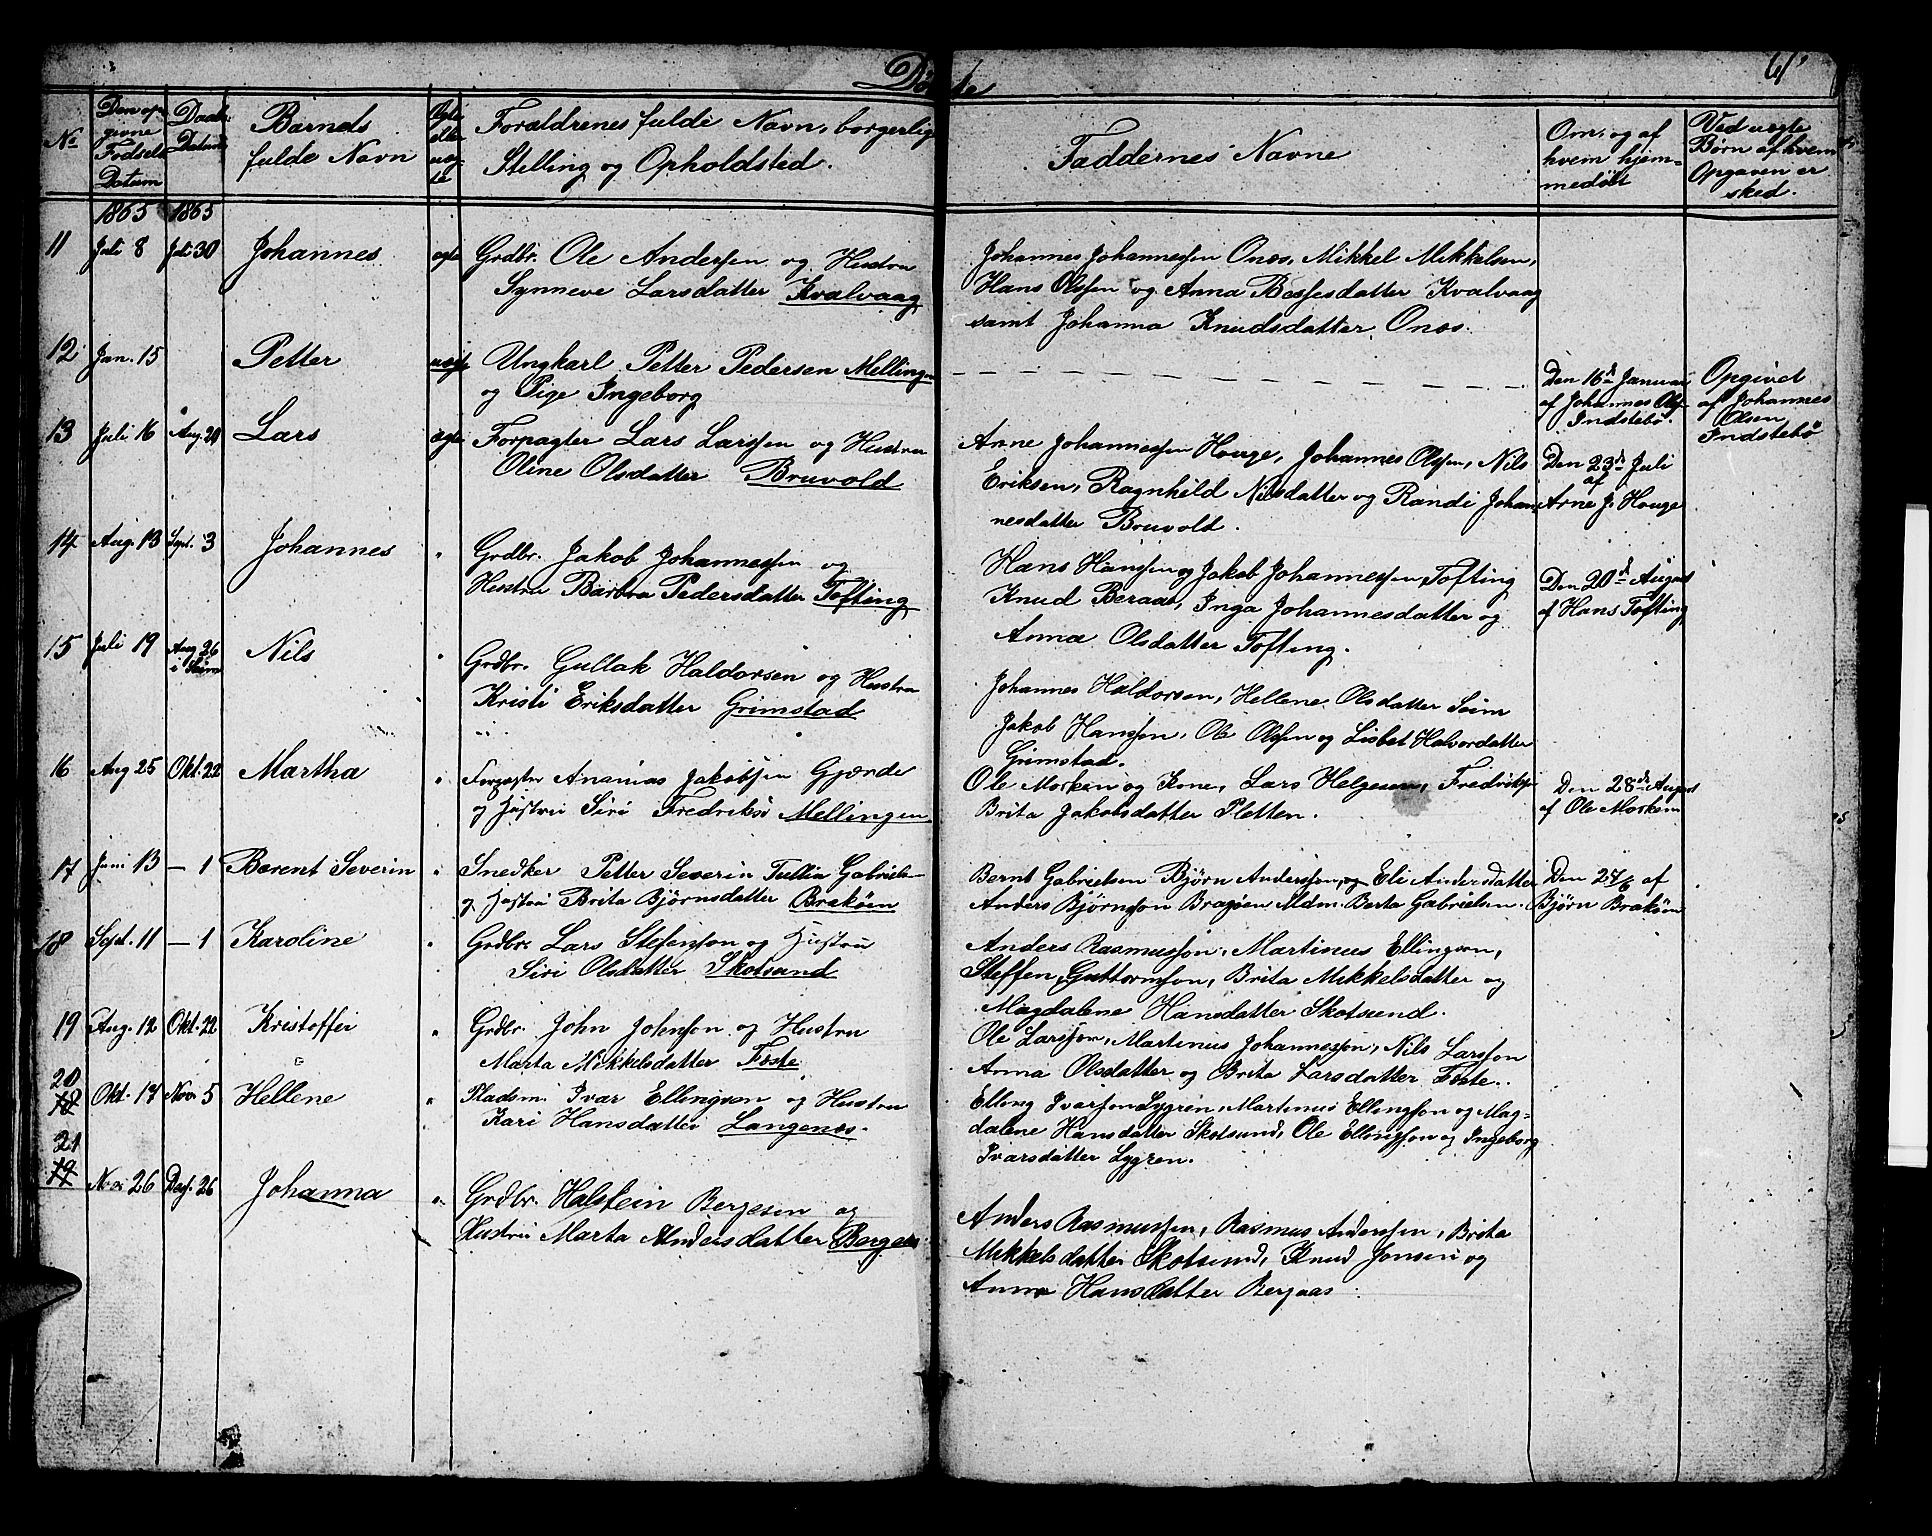 Døbte
61
No
Den op-
givne
Fødsels
Datum
Daabs
Datum
Barnets
fulde Navn
Ægte
eller
uæg-
te
Forældrenes fulde Navn, borgerlig
Stilling og Opholdsted.
Faddernes Navne
Om, og af
hvem hjem-
medøbt
Ved uægte
Børn af hvem
Opgaven er
sked.
1865 1865
11 Juli 8 Juli 30 Johannes ægte Grdbr. Ole Anderssen og Hustru
Synneve Larsdatter Kvalvaag
Johannes Johannessen Onæs, Mikkel Mikkelsen,
Hans Olssen og Anna Bessesdatter Kvalvaag
samt Johanna Knudsdatter Onæs.
12 Jan. 15 Petter uægte Ungkarl Petter Pedersen Mellingen
og Pige Ingeborg
Den 16de Januar
af Johannes Ols.
Indstebø.
Opgivet
af Johannes
Olsen
Indstebø
13 Juli 16 Aug. 20 Lars ægte Forpagter Lars Larssen og Hustru
Oline Olsdatter Bruvold
Arne Johannessen Houge, Johannes Olssen, Nils
Eriksen, Ragnhild Nilsdatter og Randi Johan
nesdatter Bruvold.
Den 23de Juli
af
Arne J. Houge
14 Aug. 13 Sept. 3 Johannes " Grdbr. Jakob Johannessen og
Hustru Barbra Pedersdatter Tofting
Hans Hanssen og Jakob Johannessen Tofting
Knud Beraas, Inga Johannesdatter og
Anna Olsdatter Tofting.
Den 20de August
af Hans Tofting
15 Juli 19 Aug 26
i Seim Nils " Grdbr. Gullak Haldorsen og Hustru
Kristi Eriksdatter Grimstad
Johannes Haldorsen, Hellene Olsdatter Seim
Jakob Hanssen, Ole Olssen og Lisbet Halvordatter
Grimstad.
16 Aug 25 Okt. 22 Martha " Forpagter Ananias Jakobsen Gjerde
og Hustru Siri Fredriks: Mellingen
Ole Morken og Kone, Lars Helgesen, Fredrik
Brita Jakobsdatter Pletten.
Den 28de August
af Ole Morken
17 Juni 13 — 1 Berent Severin " Snedker Petter Severin Tullin Gabriels-
og Hustru Brita Bjørnsdatter Brakøen
Bernt Gabrielsen Bjørn Anderssen, og Eli Andersdatter
Anders Bjørnsson Bragøen Mdm. Berta Gabrielsen.
Den 24/6 af
Bjørn Brakøen
18 Sept. 11 — 1 Karoline " Grdbr. Lars Stefensson og Hustru
Siri Olsdatter Skotsund
Anders Rasmussøn, Martinus Ellingsen,
Steffen Guttormson, Brita Mikkelsdatter og
Magdalene Hansdatter Skotsund.
19 Aug. 12 Okt. 22 Kristoffer " Grdbr. John Johnsson og Hustru
Marta Mikkelsdatter Foste
Ole Larsson, Martinus Johannesson, Nils Larsson
Anna Olsdatter og Brita Larsdatter Foste.
20
18 Okt. 17 Nov. 5 Hellene " Pladsm. Ivar Ellingsen og Hustru
Kari Hansdatter Langenæs.
Elling Ivarson Lygren, Martinus Ellingson og Mag-
dalene Hansdatter Skotsund, Ole Ellingsson og Ingeborg
Ivarsdatter Lygren.
21
19 Nov. 26 Des. 26 Johanna " Grdbr. Halstein Bergesen og
Hustru Marta Andersdatter
Anders Rasmussen, Rasmus Anderssen, Brita
Mikkelsdatter Skotsund, Knud Jonsen og
Anna Hansdatter Bergaas